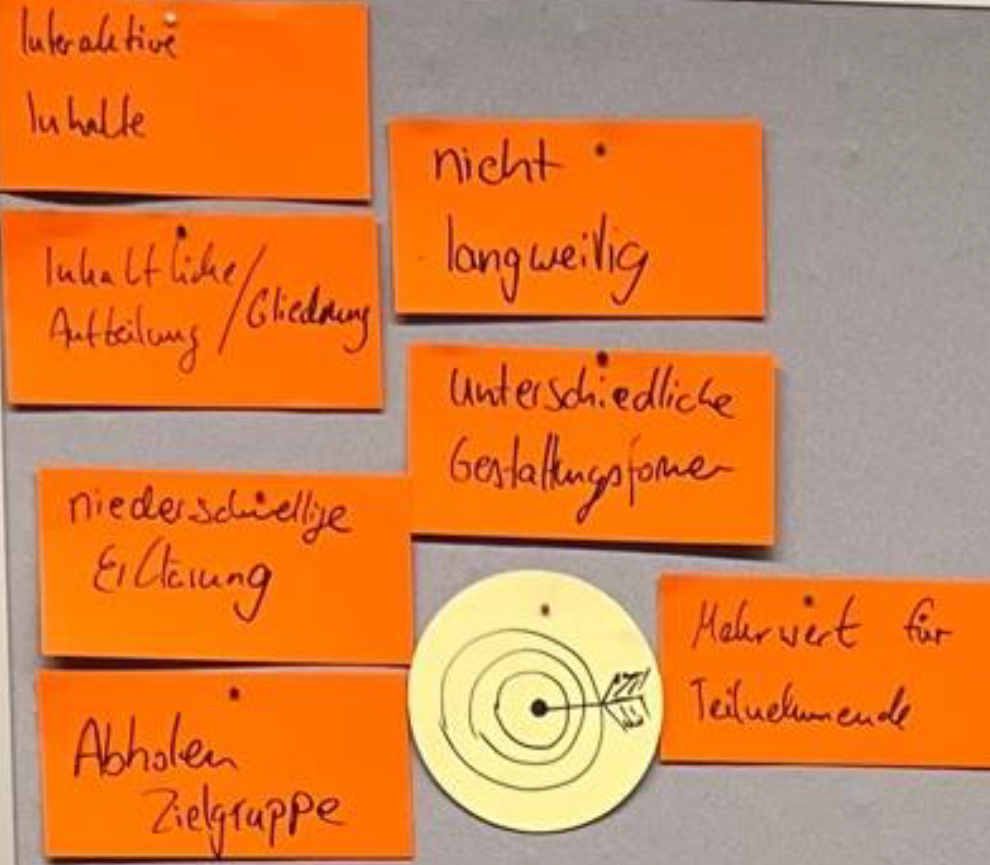 Interaktive
Inhalte
nicht
langweilig
Inhaltliche/
Aufteilung / Gliederung
unterschiedliche
Gestaltungsformen
niederschwellige
Erklärung
Mehrwert für
Teilnehmende
Abholen
Zielgruppe